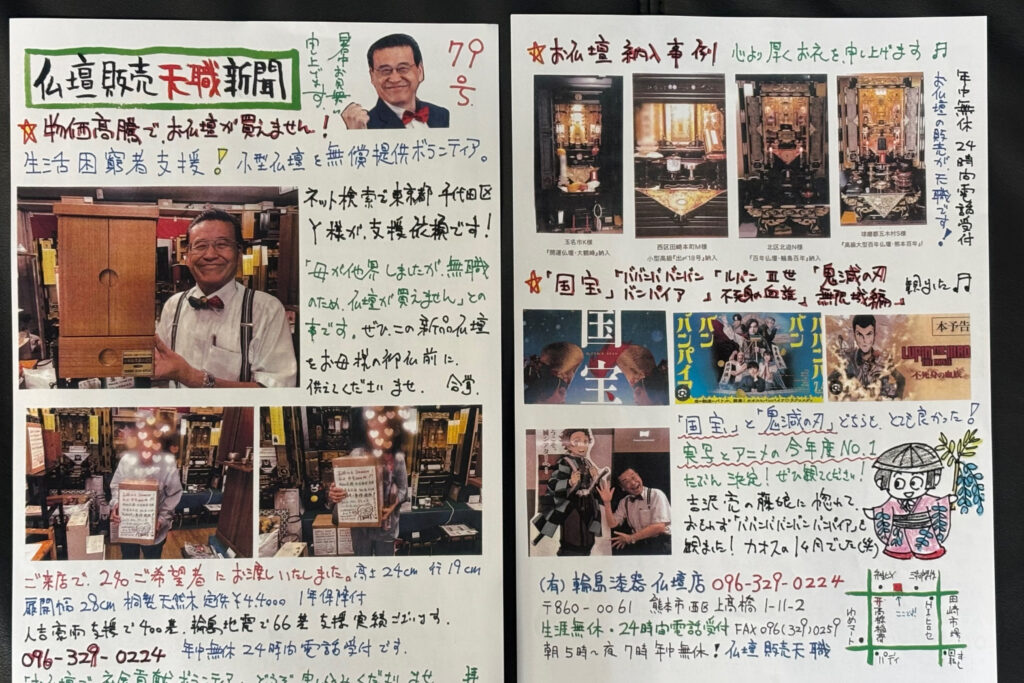 仏壇販売天職新聞
暑中お見舞い
申し上げます
79
号
☆物価高騰で、お仏壇が買えません!
生活困窮者支援! 小型仏壇を無償提供ボランティア。
ネット検索で東京都千代田区
Y様が、支援依頼です!
「母が他界しましたが、無職
のため、仏壇が買えません」との
事です。ぜひ、この新品仏壇
をお母様の御仏前に、
供えてくださいませ。 合掌
ご来店で、2名ご希望者にお渡しいたしました。高さ24cm 行19cm
扉開幅28cm 桐製天然木 定価¥44000 1年保障付
人吉豪雨支援で400基、輪島地震で66基支援実績ございます。
096-329-0224 年中無休24時間電話受付です。
☆お仏壇 納入事例 心より厚くお礼を申し上げます♬
年中無休 24時間電話受付
お仏壇の販売が、天職です!
玉名市K様
『開運仏壇・大鶴峰』納入
西区田崎本町M様
小型高級『出雲18号』納入
北区北迫N様
『百年仏壇・輪島百年』納入
球磨郡五木村S様
『高級大型百年仏壇・熊本百年』
☆「国宝」「ババンババンバン バンパイア」「ルパンⅢ世 不死身の血族」「鬼滅の刃 無限城編」観ました♬
国宝
バンパイア
バン
本予告
LUPIN THE IIIRD
不死身の血族
「国宝」と「鬼滅の刃」どちらも、とても良かった!
実写とアニメの今年度NO.1
たぶん決定!ぜひ観てください!
吉沢亮の藤娘に惚れて、
おもわず「ババンババンバンバンパイア」も
観ました! カオスの1ヶ月でした(笑)
(有)輪島漆器仏壇店 096-329-0224
〒860-0061 熊本市西区上高橋1-11-2
生涯無休・24時間電話受付 FAX096(329)0259
朝5時~夜7時 年中無休! 仏壇販売天職
ここ!
田崎市場